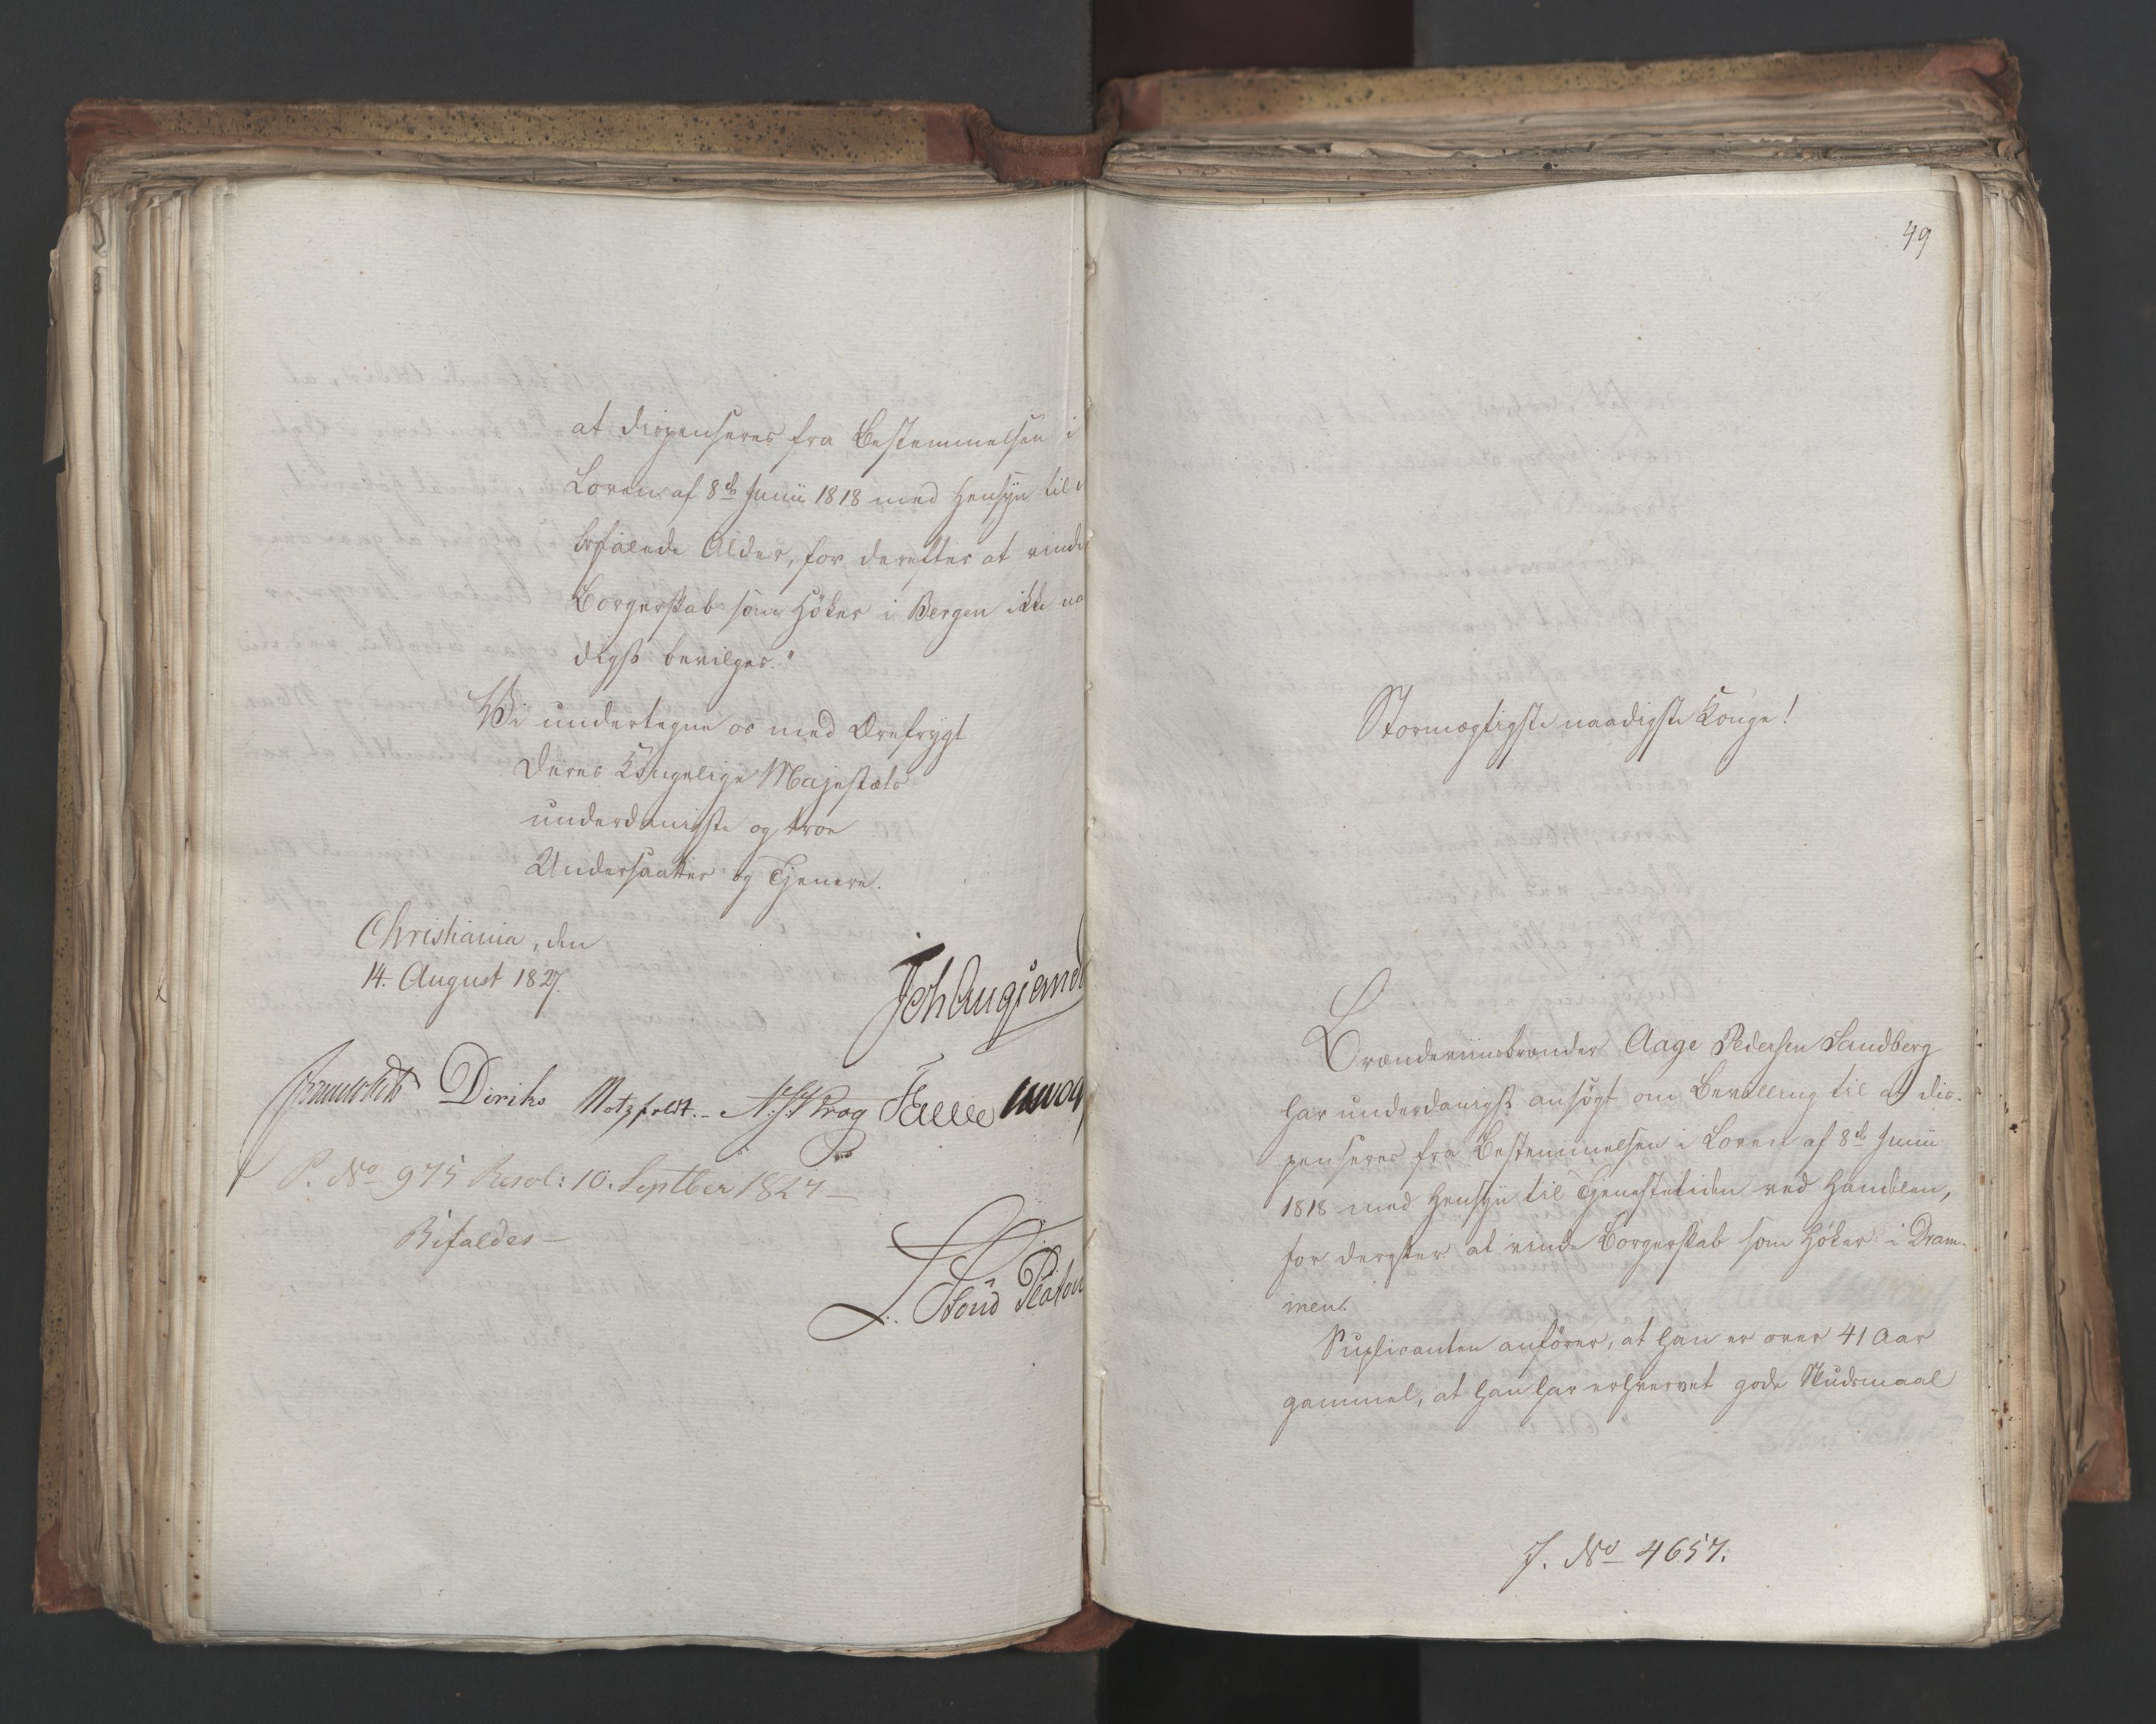 at dispenseres fra Bestemmelsen i
Loven af 8de Junii 1818 med Hensyn til
befalede Alder, for derefter at vinde
Borgerskab som Höker i Bergen ikke na
digst bevilges."
Vi undertegne os med Ærefrygt
Deres Kongelige Majestæts
underdanigste og troe
Undersaatter og Tjenere.
Christiania, den
14. August 1827.
Diriks Motzfeldt. Krog
P. No 975 Resol: 10. Septber 1827 -
Bifaldes -
49
Stormægtigste naadigste Konge!
Brændeviinsbrænder Aage Pedersen Sandberg
har underdanigst ansøgt om Bevilling til at dis-
penseres fra Bestemmelsen i Loven af 8de Junii
1818 med Hensyn til Tjenestetiden ved Handelen,
for derefter at vinde Borgerskab som Höker i Dram-
men.
Suplicanten anfører, at han er over 41 Aar
gammel, at han har erhvervet gode Skudsmaal
J. No 4657.